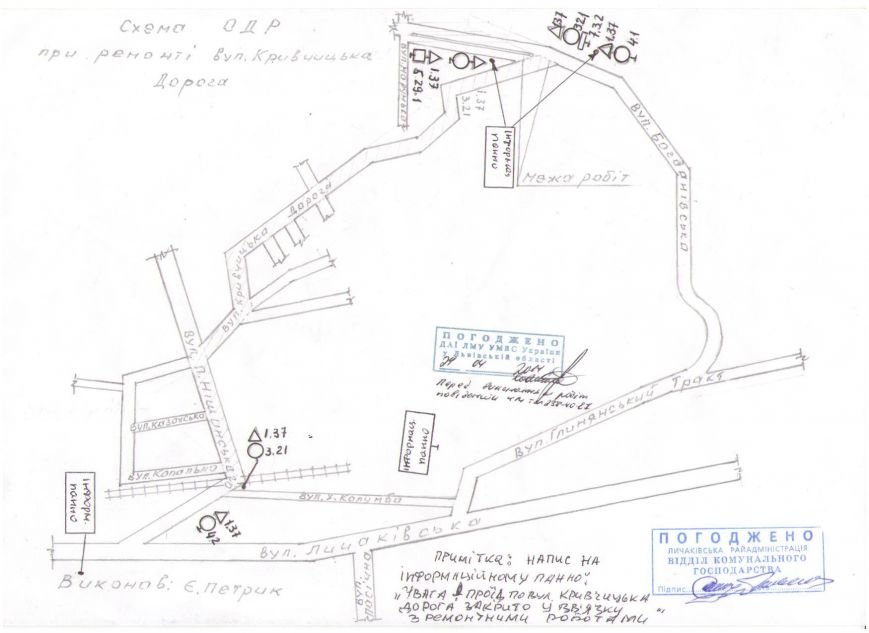 Схема ОДР
при ремонті вул. Кривчицька
Дорога
1.37
3.21
7.3.2
1.37
4.1
1.37
5.29.1
1.37
3.21
інформац.
панно
Межа робіт
вул. Богданівська
Дорога
вул. Кривчицька
вул. П. Ніщинського
вул. Козацька
вул. Копальна
1.37
3.21
4.2
1.37
інформац.
панно
інформац.
панно
ПОГОДЖЕНО
ДАІ ЛМУ УМВС України
у Львівській області
29 04 2014
Перед виконанням робіт
вул. Глинянський Тракт
вул. Х. Колумба
вул. Личаківська
вул.
Пасічна
Виконав: Є. Петрик
Примітка: напис на
інформаційному панно:
„Увага! Проїзд по вул. Кривчицька
Дорога закрито у звязку
з ремонтними роботами"
ПОГОДЖЕНО
ЛИЧАКІВСЬКА РАЙАДМІНІСТРАЦІЯ
ВІДДІЛ КОМУНАЛЬНОГО
ГОСПОДАРСТВА
Підпис